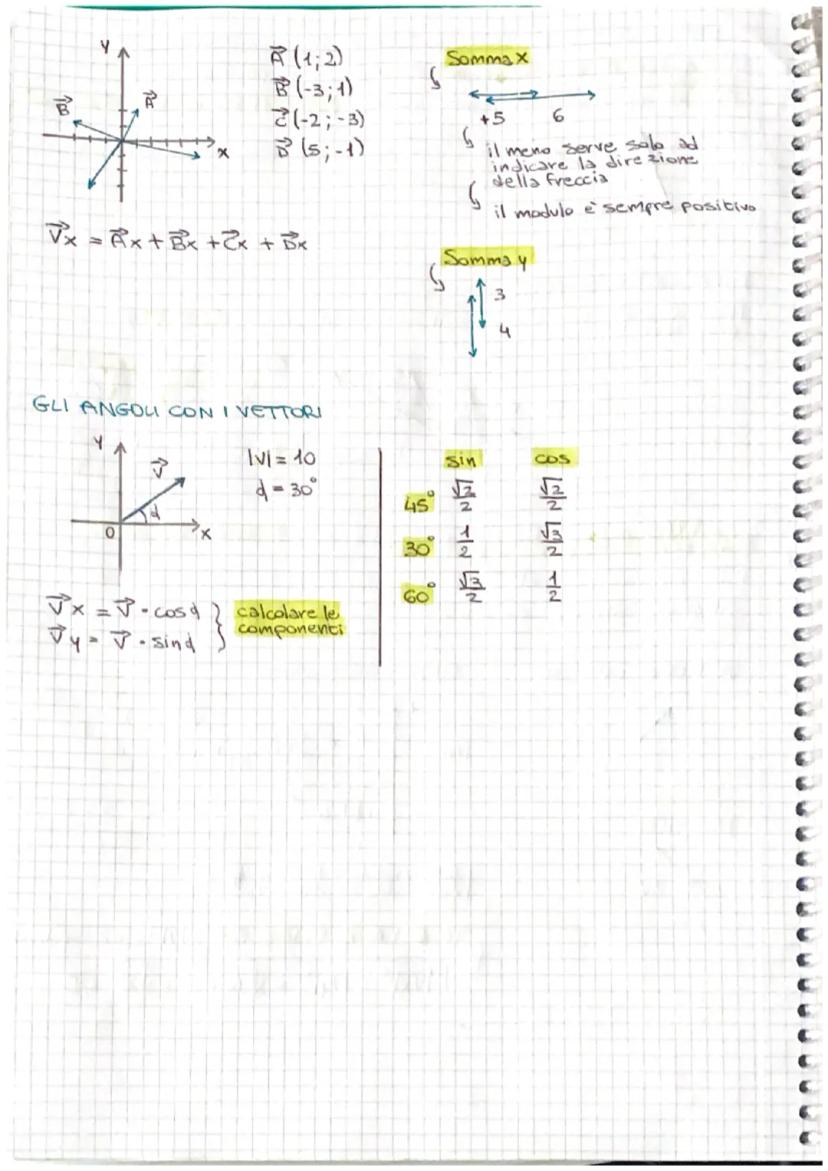 y
A⃗
B⃗
x
A⃗ (1; 2)
B⃗ (-3; 1)
C⃗ (-2; -3)
D⃗ (5; -1)
V⃗x = A⃗x + B⃗x + C⃗x + D⃗x
Somma x
+5 6
il meno serve solo ad
indicare la direzione
della freccia
il modulo è sempre positivo
Somma y
3
4
GLI ANGOLI CON I VETTORI
y
V⃗
α
0
x
|V| = 10
α = 30°
V⃗x = V⃗ · cosα
V⃗y = V⃗ · sinα
calcolare le
componenti
sin cos
45° √2/2 √2/2
30° 1/2 √3/2
60° √3/2 1/2